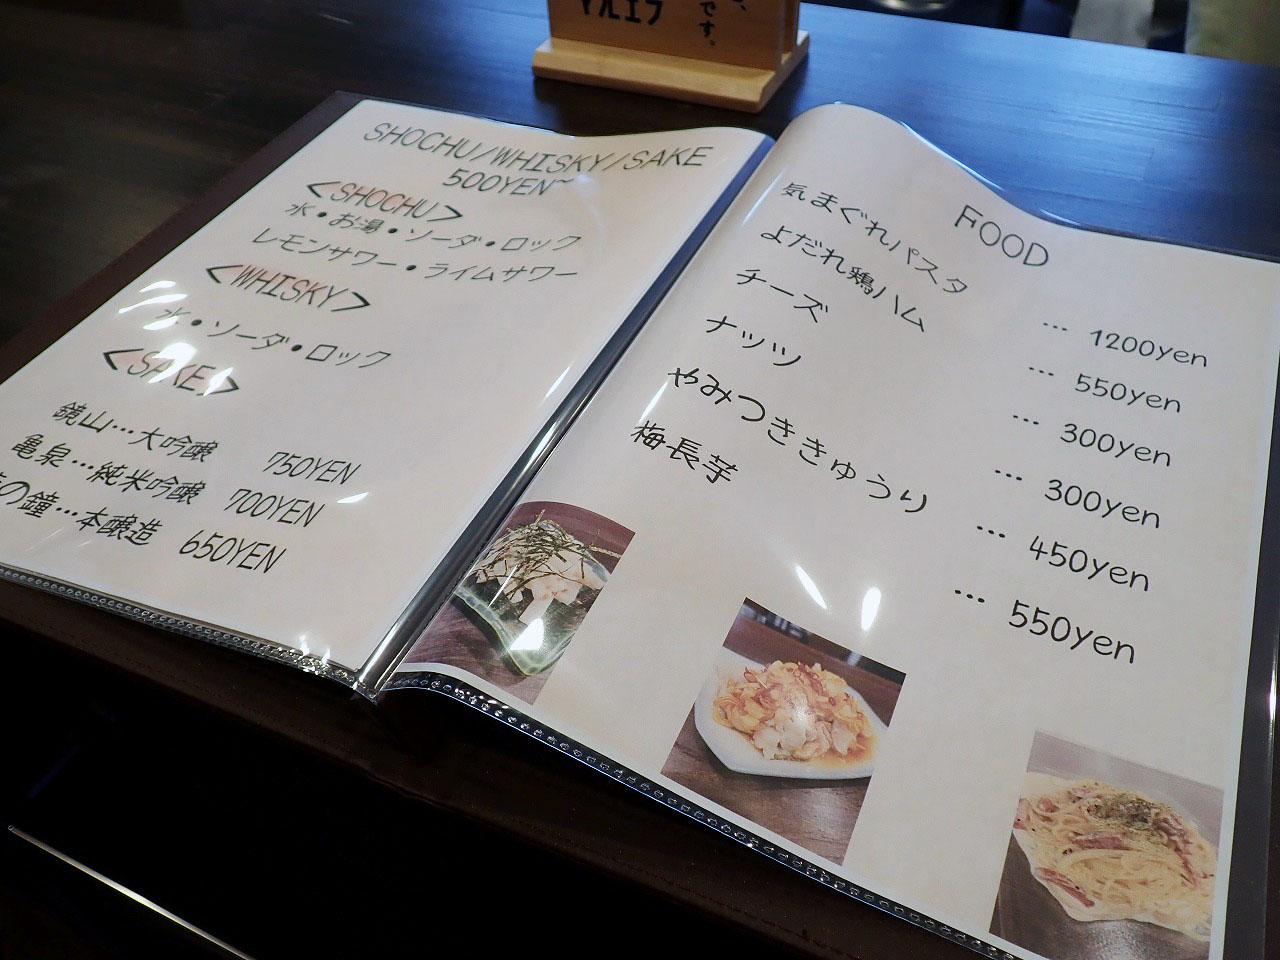 マルエフ
です。
SHOCHU/WHISKY/SAKE
500YEN~
<SHOCHU>
水・お湯・ソーダ・ロック
レモンサワー・ライムサワー
<WHISKY>
水・ソーダ・ロック
<SAKE>
鏡山…大吟醸 750YEN
亀泉…純米吟醸 700YEN
の鐘…本醸造 650YEN
FOOD
気まぐれパスタ … 1200yen
よだれ鶏ハム … 550yen
チーズ … 300yen
ナッツ … 300yen
やみつききゅうり … 450yen
梅長芋 … 550yen